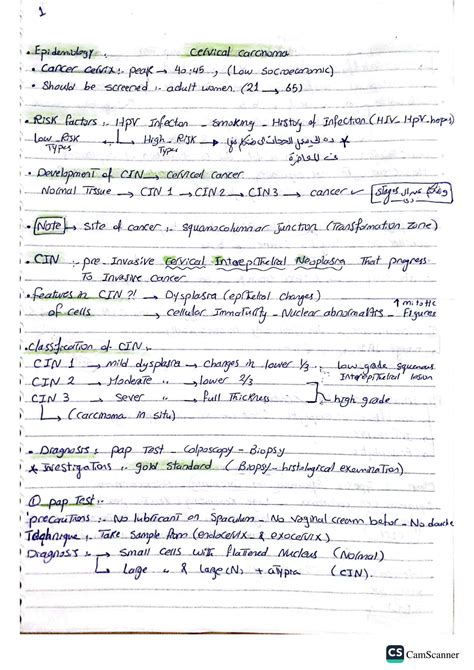 1
Cervical carcinoma
• Epidemiology :
• Cancer cervix :. peak → 40:45 , (Low Socioeconomic)
• Should be screened :. adult women (21 → 65)
• RISK factors :. HPV Infection _ smoking _ History of Infection (HIV_ HPV_
Low_Risk Types ← → High_Risk Types
• Development of CIN → cervical cancer
Normal Tissue → CIN 1 → CIN 2 → CIN 3 → cancer
• Note → site of cancer :. squamocolumnar Junction (Transformation zone)
• CIN :. pre_Invasive Cervical Intraepithelial Neoplasia That progress
To Invasive cancer
• features in CIN ?! → Dysplasia (epithelial changes)
of cells → cellular Immaturity _ Nuclear abnormalities _ ↑ mitotic Figures
• Classification of CIN :.
CIN 1 → mild dysplasia → changes in lower 1/3 :. low grade squamous Intraepithelial lesion
CIN 2 → Moderate ,, → lower 2/3
CIN 3 → Sever ,, → full Thickness → high grade
↳ (carcinoma in situ)
• Diagnosis : pap Test _ Colposcopy _ Biopsy
* Investigations :. gold standard ( Biopsy _ histological examination)
① pap Test :.
precautions :. No lubricant on Speculum _ No vaginal cream befor _ No douche
Technique :. Take Sample from (endocervix & exocervix)
Diagnosis :. → Small cells with flattened Nucleus (Normal)
↳ Large ,, & large (N) + atypia (CIN).
CS CamScanner